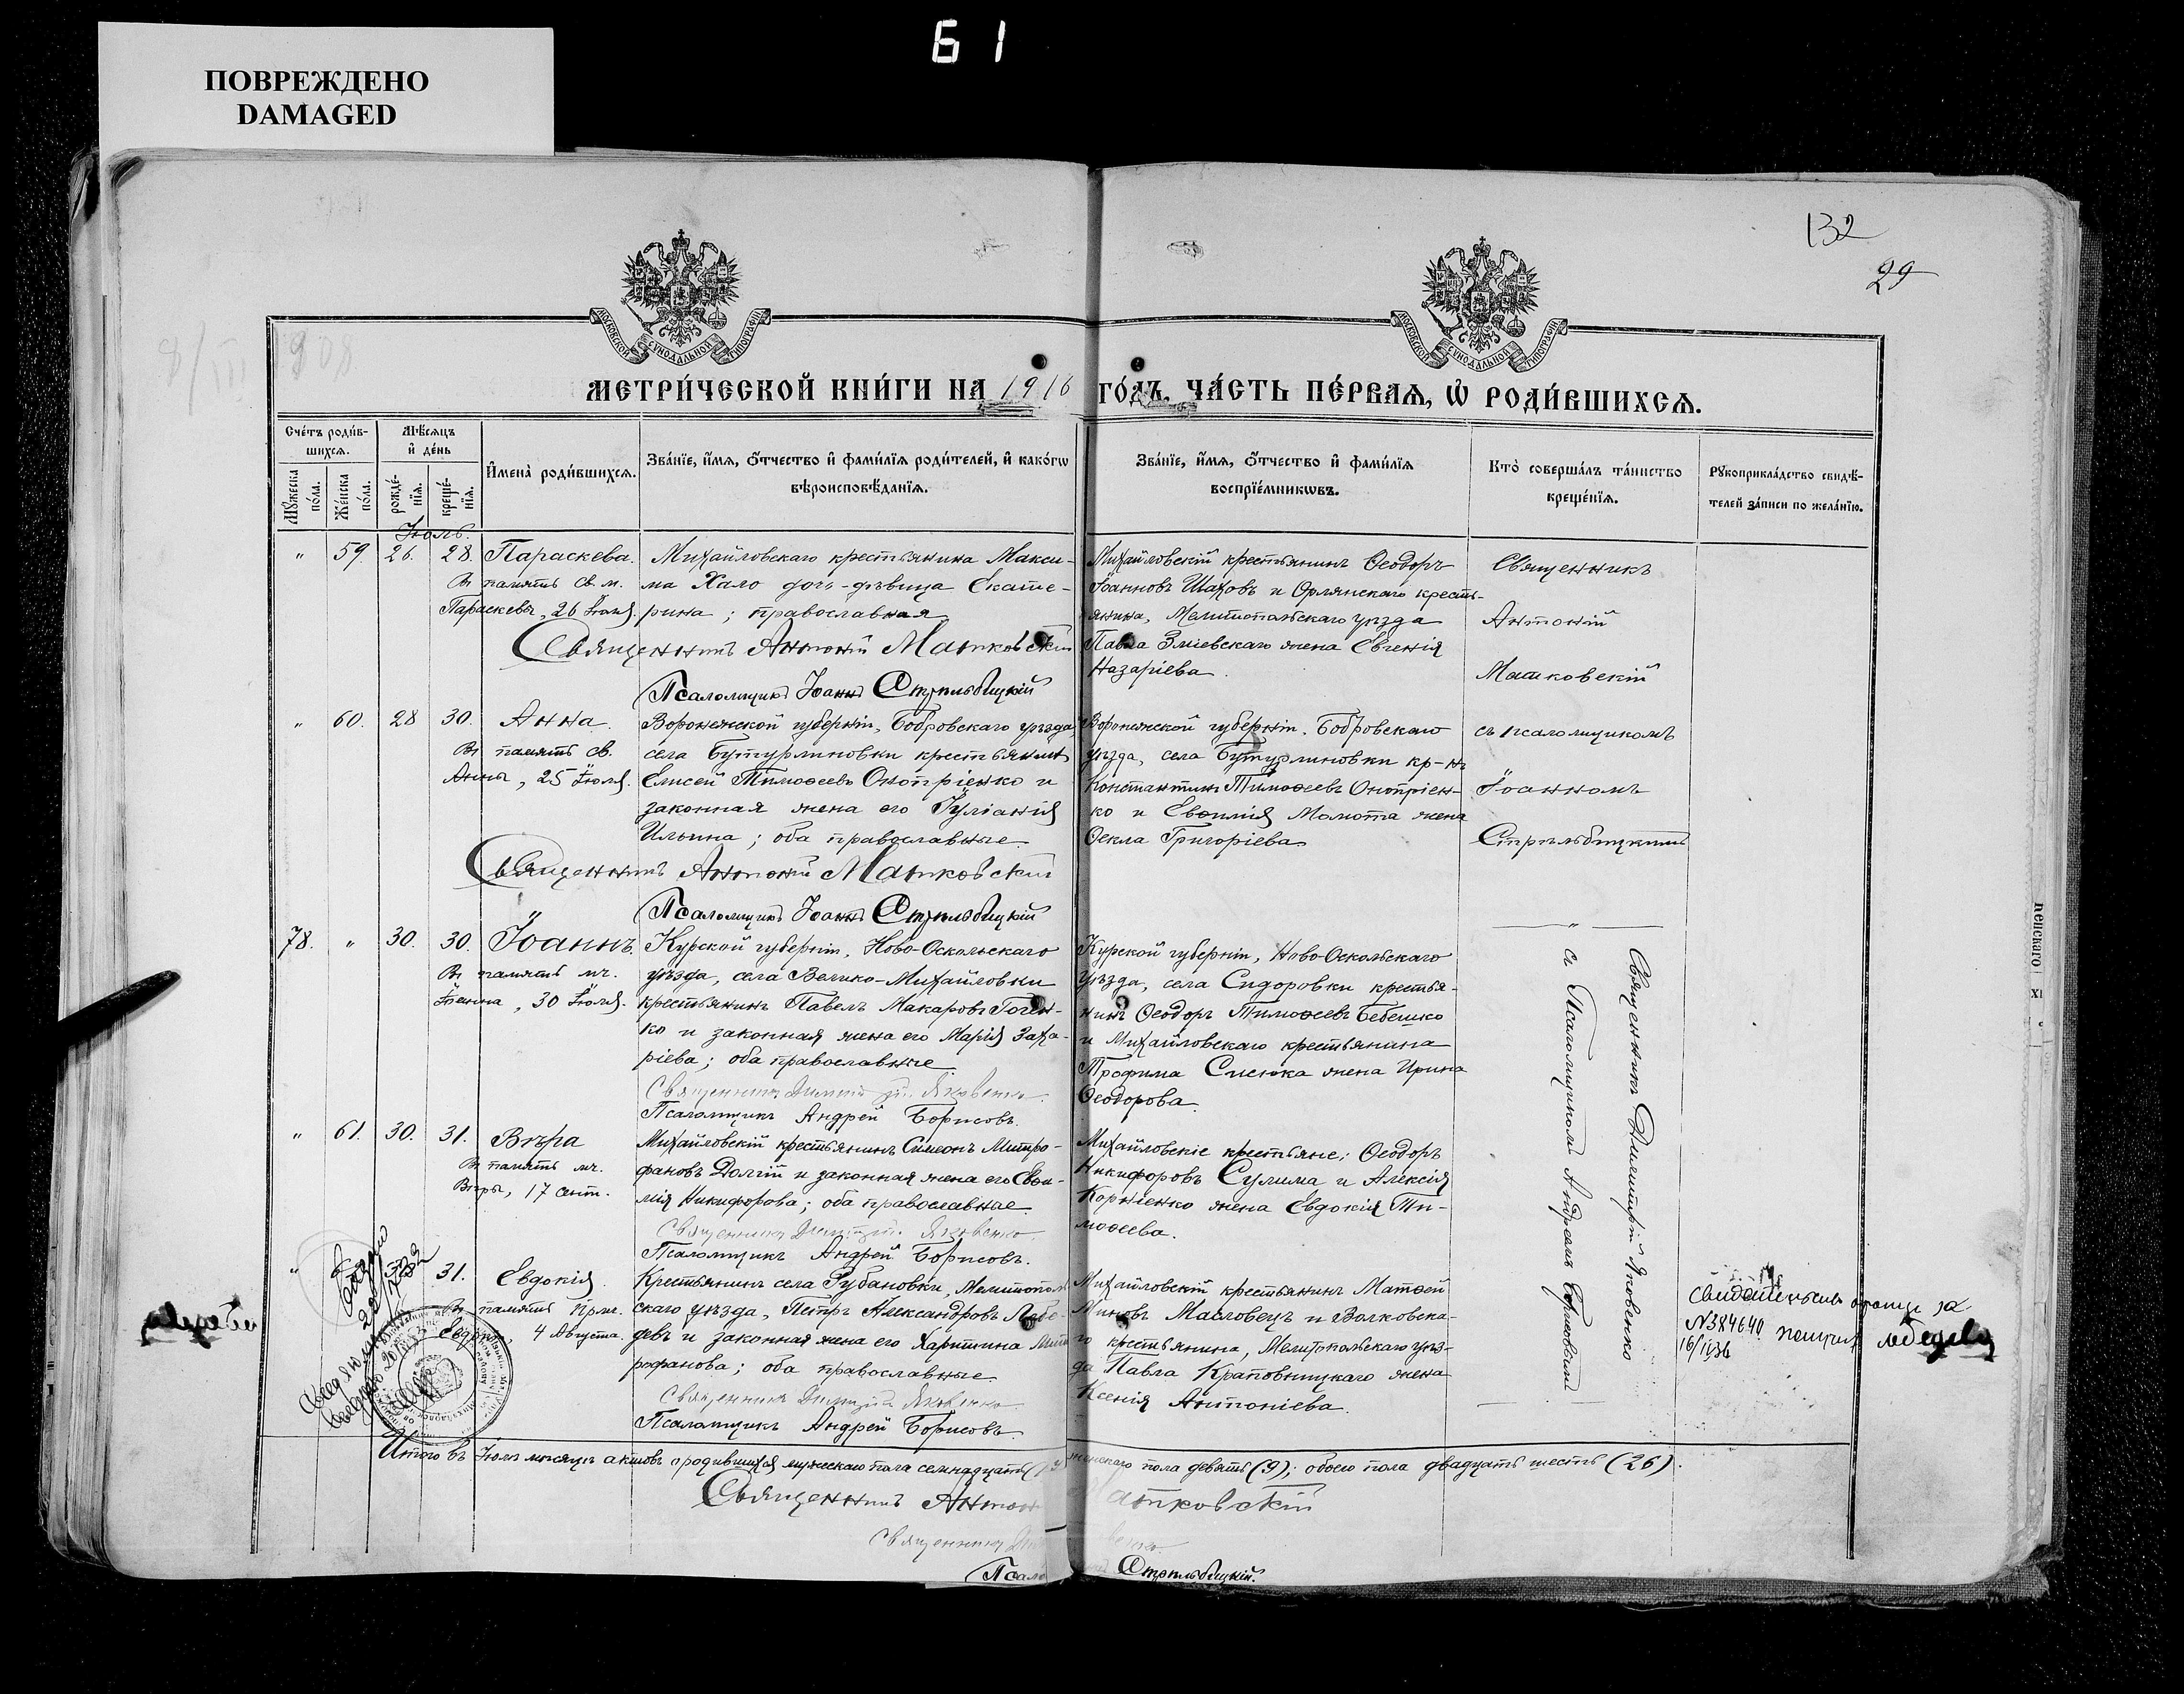 61
ПОВРЕЖДЕНО
DAMAGED
132
29
МОСКОВСКОЙ СѴНОДАЛЬНОЙ ТИПОГРАФІИ
МОСКОВСКОЙ СѴНОДАЛЬНОЙ ТИПОГРАФІИ
МЕТРИ́ЧЕСКОЙ КНИ́ГИ НА 1916 ГО́ДЪ, ЧА́СТЬ ПЕ́РВАЯ, Ѡ҆ РОДИ́ВШИХСЯ.
Сче́тъ роди́в-
шихся.
Мѣ́сяцъ
и҆ де́нь
Мꙋ́жеска
по́ла.
Же́нска
по́ла.
рожде́-
нїя.
креще́-
нїя.
И҆мена̀ роди́вшихся.
Зва́нїе, и҆́мя, ѻ҆́тчество и҆ фамѝлїя роди́телей, и҆ како́гѡ
вѣроисповѣ́данїя.
Зва́нїе, и҆́мя, ѻ҆́тчество и҆ фами́лїя
воспрїе́мникѡвъ.
Кто̀ соверша́лъ та́инство
креще́нїя.
Рꙋкоприкла́дство свидѣ́-
телей за́писи по жела́нїю.
Іюль.
" 59. 26. 28. Параскева.
Въ память св. м.
Параскевы, 26 Іюля.
Михайловскаго крестьянина Макси-
ма Хало дочь-дѣвица Екате-
рина; православная
Священникъ Антоній Матковскій
Псаломщикъ Іоаннъ Стрѣльбицкій
Михайловскій крестьянинъ Ѳеодоръ
Іоанновъ Шаховъ и Орлянскаго кресть-
янина, Мелитопольскаго уѣзда
Павла Зміевскаго жена Евгенія
Назаріева.
Священникъ
Антоній
Матковскій
съ псаломщикомъ
Іоанномъ
Стрѣльбицкимъ
" 60. 28 30. Анна.
Въ память св.
Анны, 25 Іюля.
Воронежской губерніи, Бобровскаго уѣзда,
села Бутурлиновки крестьянинъ
Елисей Тимоѳеевъ Оноприенко и
законная жена его Іуліанія
Ильина; оба православные.
Священникъ Антоній Матковскій
Псаломщикъ Іоаннъ Стрѣльбицкій
Воронежской губерніи, Бобровскаго
уѣзда, села Бутурлиновки кр-нъ
Константинъ Тимоѳеевъ Онопріен-
ко и Евѳимія Момота жена
Ѳекла Григоріева
78. " 30. 30. Іоаннъ.
Въ память мч.
Іоанна, 30 Іюля.
Курской губерніи, Ново-Оскольскаго
уѣзда, села Велико-Михайловки
крестьянинъ Павелъ Макаровъ Гочен-
ко и законная жена его Марія Заха-
ріева; оба православные.
Священникъ Димитрій Яковенко
Псаломщикъ Андрей Борисовъ.
Курской губерніи, Ново-Оскольскаго
уѣзда, села Сидоровки крестья-
нинъ Ѳеодоръ Тимоѳеевъ Бебешко
и Михайловскаго крестьянина
Трофима Сисюка жена Ирина
Ѳеодорова.
Священникъ Димитрій Яковенко
съ Псаломщикомъ Андреемъ Борисовымъ
" 61. 30. 31. Вѣра
Въ память мч.
Вѣры, 17 сент.
Михайловскій крестьянинъ Симеонъ Митро-
фановъ Долгій и законная жена его Евѳи-
мія Никифорова; оба православные.
Священникъ Димитрій Яковенко
Псаломщикъ Андрей Борисовъ.
Михайловскіе крестьяне: Ѳеодоръ
Никифоровъ Сулима и Алексія
Корніенко жена Евдокія Ти-
моѳеева.
" 31. Евдокія.
Въ память прмч.
Евдокіи, 4 Августа.
Крестьянинъ села Рубановки, Мелитополь-
скаго уѣзда, Петръ Александровъ Лебе-
девъ и законная жена его Харитина Мит-
рофанова; оба православные.
Священникъ Димитрій Яковенко
Псаломщикъ Андрей Борисовъ
Михайловскій крестьянинъ Матѳей
Миновъ Масловецъ и Волковска-
го крестьянина, Мелитопольскаго уѣз-
да Павла Краповницкаго жена
Ксенія Антоніева.
№384640
16/II36
Лебедева
Итого въ Іюлѣ мѣсяцѣ актовъ о родившихся мужескаго пола семнадцать (17), женскаго пола девять (9); обоего пола двадцать шесть (26).
Священникъ Антоній Матковскій
Священникъ
Стрѣльбицкій.